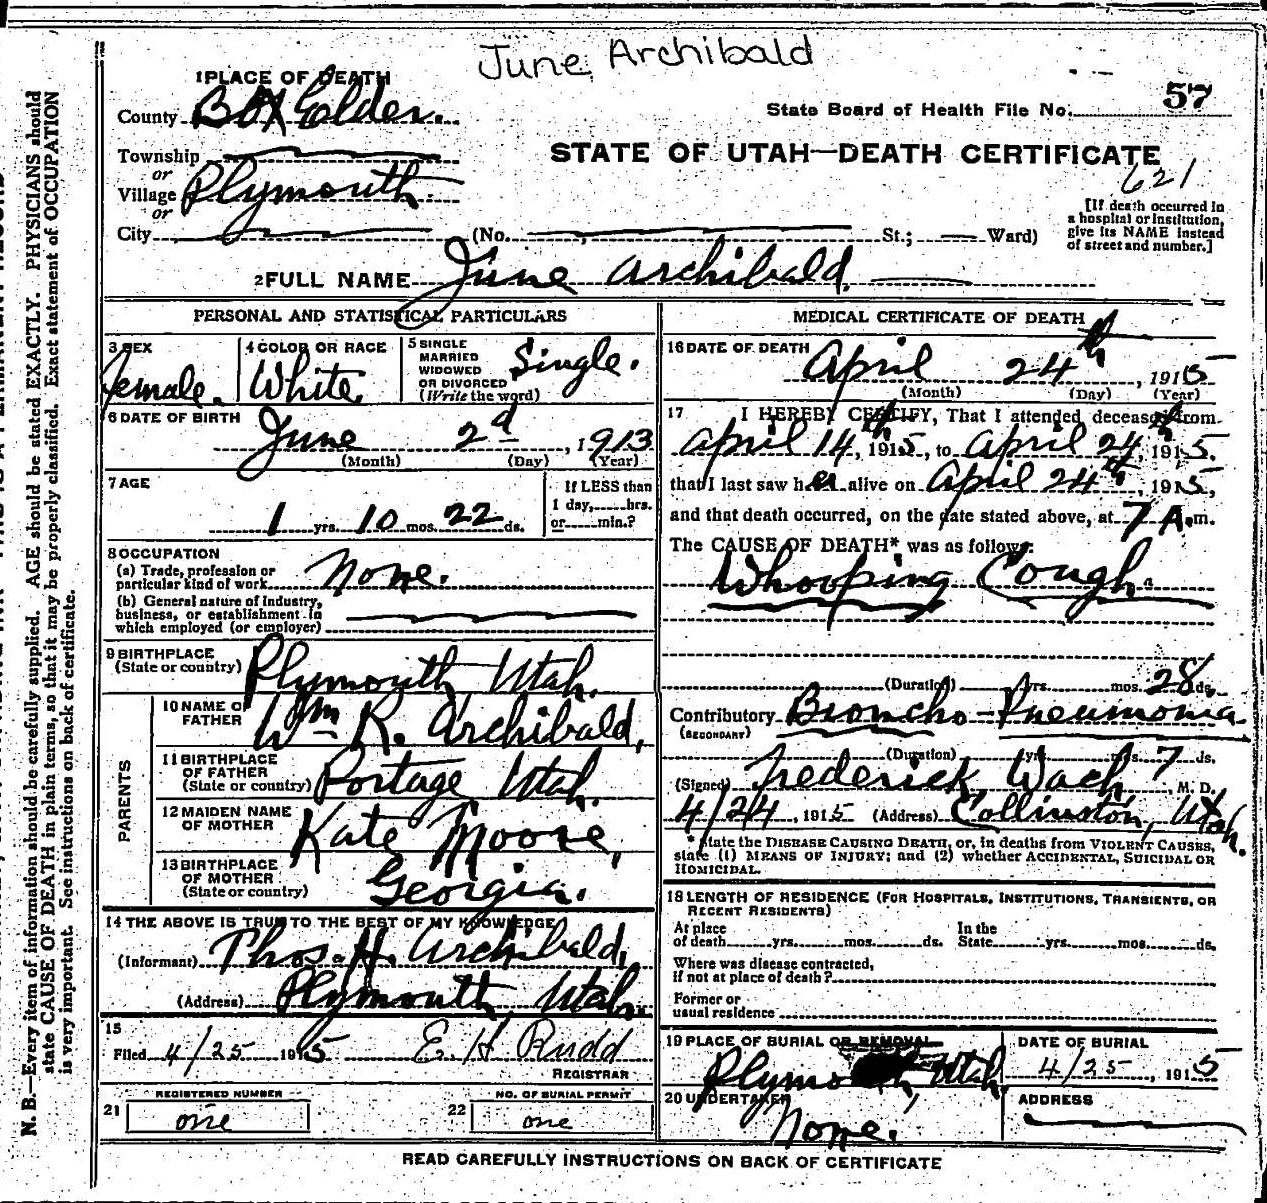 June Archibald
1 PLACE OF DEATH
County Box Elder.
State Board of Health File No. 57
Township
or
Village Plymouth
or
City (No. St.; Ward)
STATE OF UTAH—DEATH CERTIFICATE
621
[If death occurred in
a hospital or institution,
give its NAME instead
of street and number.]
2 FULL NAME June Archibald.
PERSONAL AND STATISTICAL PARTICULARS
3 SEX
Female.
4 COLOR OR RACE
White
5 SINGLE
MARRIED
WIDOWED
OR DIVORCED
(Write the word)
Single.
6 DATE OF BIRTH
June 2d, 1913
(Month) (Day) (Year)
7 AGE
1 yrs. 10 mos. 22 ds.
If LESS than
1 day, hrs.
or min.?
8 OCCUPATION
(a) Trade, profession or
particular kind of work None.
(b) General nature of industry,
business, or establishment in
which employed (or employer)
9 BIRTHPLACE
(State or country) Plymouth Utah.
PARENTS
10 NAME OF
FATHER Wm R. Archibald,
11 BIRTHPLACE
OF FATHER
(State or country) Portage Utah.
12 MAIDEN NAME
OF MOTHER Kate Moore,
13 BIRTHPLACE
OF MOTHER
(State or country) Georgia.
14 THE ABOVE IS TRUE TO THE BEST OF MY KNOWLEDGE
(Informant) Thos. H. Archibald,
(Address) Plymouth Utah.
15
Filed 4/25 1915 E. H. Rudd
REGISTRAR
REGISTERED NUMBER
21 one
NO. OF BURIAL PERMIT
22 one
MEDICAL CERTIFICATE OF DEATH
16 DATE OF DEATH
April 24th, 1915
(Month) (Day) (Year)
17 I HEREBY CERTIFY, That I attended deceased from
April 14th, 1915, to April 24th, 1915.
that I last saw her alive on April 24th, 1915,
and that death occurred, on the date stated above, at 7 A.m.
The CAUSE OF DEATH* was as follows:
Whooping Cough.
(Duration) yrs. mos. 28 ds.
Contributory Broncho-Pneumonia
(SECONDARY)
(Duration) yrs. mos. 7 ds.
(Signed) Frederick Wach, M. D.
4/24, 1915 (Address) Collinston, Utah.
*State the DISEASE CAUSING DEATH, or, in deaths from VIOLENT CAUSES,
state (1) MEANS OF INJURY; and (2) whether ACCIDENTAL, SUICIDAL OR
HOMICIDAL.
18 LENGTH OF RESIDENCE (FOR HOSPITALS, INSTITUTIONS, TRANSIENTS, OR
RECENT RESIDENTS)
At place
of death yrs. mos. ds.
In the
State yrs. mos. ds.
Where was disease contracted,
if not at place of death?
Former or
usual residence
19 PLACE OF BURIAL OR REMOVAL
Plymouth Utah,
DATE OF BURIAL
4/25, 1915
20 UNDERTAKER
None.
ADDRESS
READ CAREFULLY INSTRUCTIONS ON BACK OF CERTIFICATE
N. B.—Every item of information should be carefully supplied. AGE should be stated EXACTLY. PHYSICIANS should
state CAUSE OF DEATH in plain terms, so that it may be properly classified. Exact statement of OCCUPATION
is very important. See instructions on back of certificate.